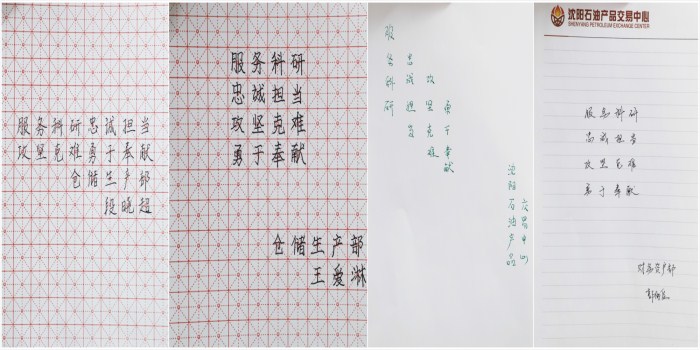 服务科研忠诚担当
攻坚克难勇于奉献
仓储生产部
段晓超
服务科研
忠诚担当
攻坚克难
勇于奉献
仓储生产部
王爱淋
服务科研
忠诚担当
攻坚克难
勇于奉献
沈阳石油产品
交易中心
沈阳石油产品交易中心
SHENYANG PETROLEUM EXCHANGE CENTER
服务科研
忠诚担当
攻坚克难
勇于奉献
财务资产部